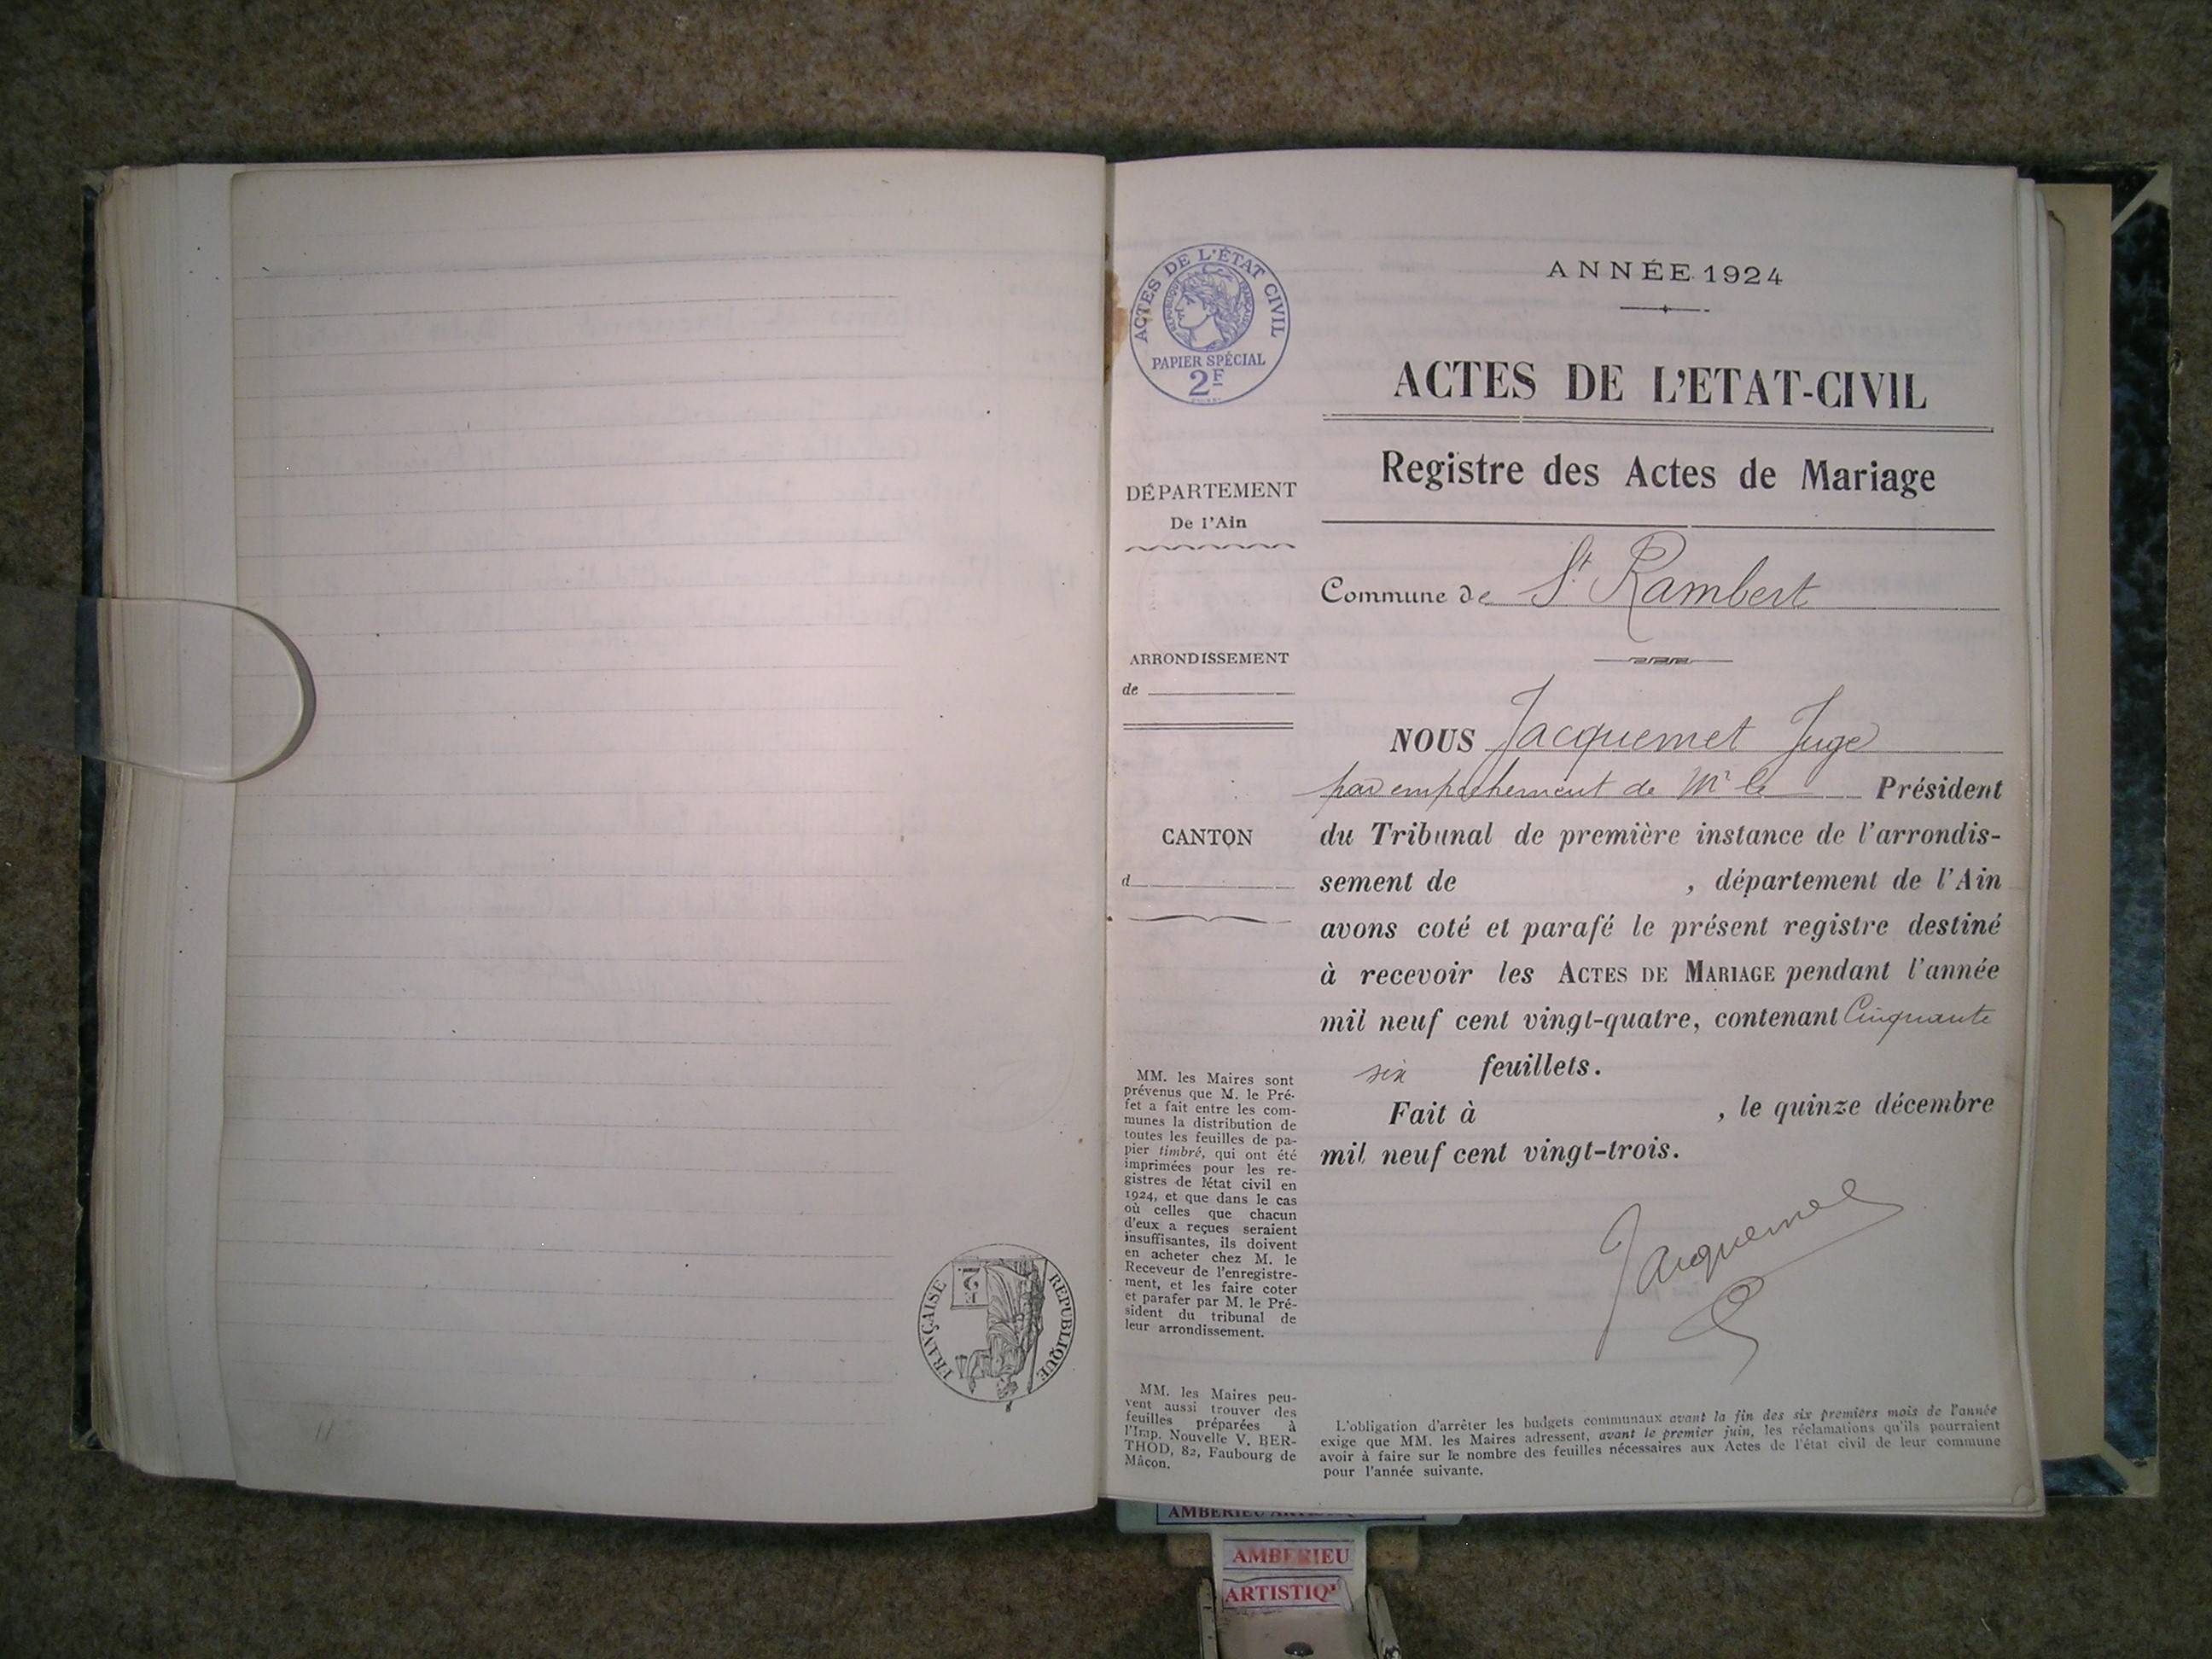 RÉPUBLIQUE
FRANÇAISE
2
11
ACTES DE L'ÉTAT CIVIL
RÉPUBLIQUE FRANÇAISE
PAPIER SPÉCIAL
2F
DÉPARTEMENT
De l'Ain
ARRONDISSEMENT
de
CANTON
d
MM. les Maires sont
prévenus que M. le Pré-
fet a fait entre les com-
munes la distribution de
toutes les feuilles de pa-
pier timbré, qui ont été
imprimées pour les re-
gistres de l'état civil en
1924, et que dans le cas
où celles que chacun
d'eux a reçues seraient
insuffisantes, ils doivent
en acheter chez M. le
Receveur de l'enregistre-
ment, et les faire coter
et parafer par M. le Pré-
sident du tribunal de
leur arrondissement.
MM. les Maires peu-
vent aussi trouver des
feuilles préparées à
l'Imp. Nouvelle V. BER-
THOD, 82, Faubourg de
Mâcon.
ANNÉE 1924
ACTES DE L'ETAT-CIVIL
Registre des Actes de Mariage
Commune de St Rambert
NOUS Jacquemet Juge
par empêchement de Mr le Président
du Tribunal de première instance de l'arrondis-
sement de , département de l'Ain
avons coté et parafé le présent registre destiné
à recevoir les ACTES DE MARIAGE pendant l'année
mil neuf cent vingt-quatre, contenant Cinquante
six feuillets.
Fait à , le quinze décembre
mil neuf cent vingt-trois.
Jacquemet
L'obligation d'arrêter les budgets communaux avant la fin des six premiers mois de l'année
exige que MM. les Maires adressent, avant le premier juin, les réclamations qu'ils pourraient
avoir à faire sur le nombre des feuilles nécessaires aux Actes de l'état civil de leur commune
pour l'année suivante.
AMBERIEU
AMBERIEU
ARTISTIQ